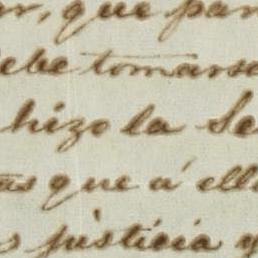 r, que par
ebe tomarse
hizo la Se
as que a' ella
s justicia y